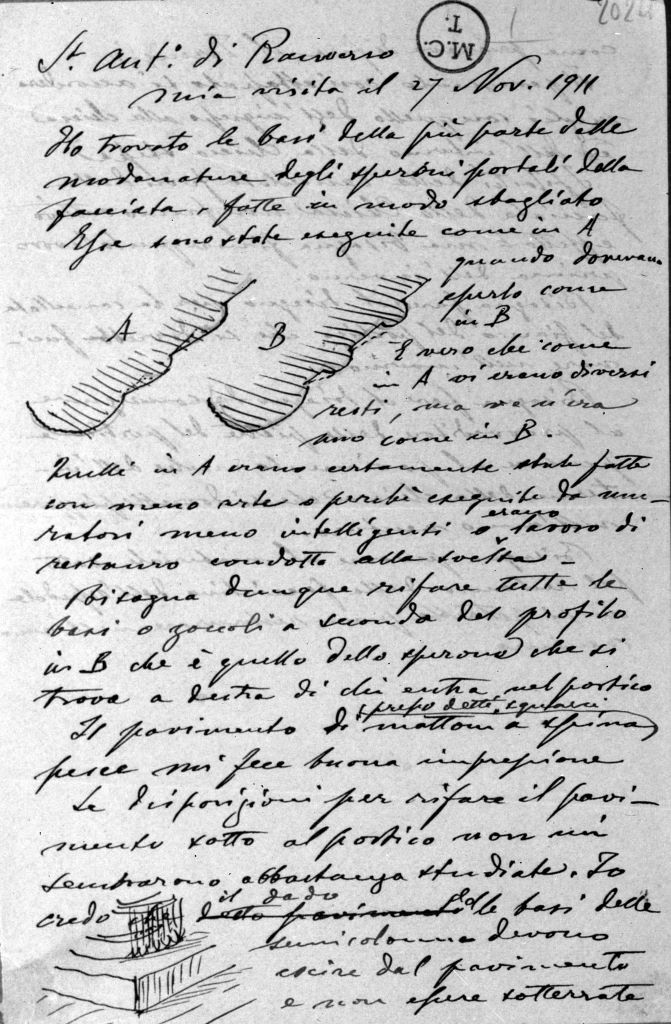 M.C.
T.
1
202
St. Ant.o di Ranverso
mia visita il 27 Nov. 1911
Ho trovato le basi della più parte delle
modanature degli speroni portali della
facciata, fatte in modo sbagliato
Esse sono state eseguite come in A
quando dovevano
esserlo come
in B
A
B
È vero che come
in A vi erano diversi
resti, ma ve n'era
uno come in B.
Quelli in A erano certamente state fatte
con meno arte o perché eseguite da mu-
ratori meno intelligenti o erano lavoro di
restauro condotto alla svelta -
Bisogna dunque rifare tutte le
basi o zoccoli a seconda del profilo
in B che è quello dello sperone che si
trova a destra di chi entra nel portico
Il pavimento di mattoni a spina
pesce mi fece buona impressione
Le disposizioni per rifare il pavi-
mento sotto al portico non mi
sembrarono abbastanza studiate. Io
credo il dado delle basi delle
semicolonne devono
escire dal pavimento
e non essere sotterrate